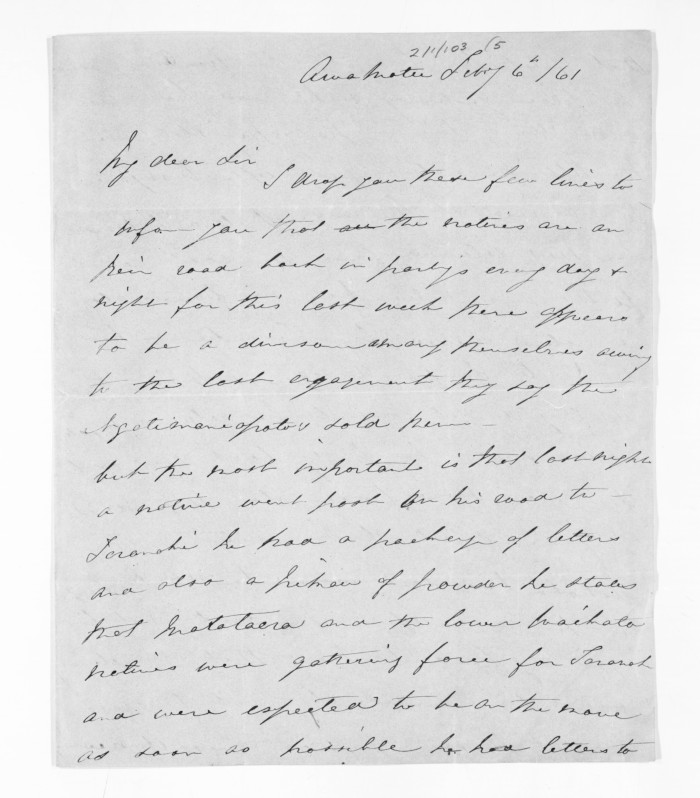 2/1/103 /5
Awakater Feby 6th /61
My dear Sir
I drop you these few lines to
infor you that the natives are on
their road back in partys every day &
night for this last week there appears
to be a division among themselves owing
to the last engagement they say the
Ngatimaniopoto's sold them
but the most important is that last night
a native went past on his road to
Taranaki he had a package of letters
and also a of powder he states
that Matataera and the lower Waikato
natives were gathering force for Taranak
and were expected to be on the move
as soon as possible he had letters to